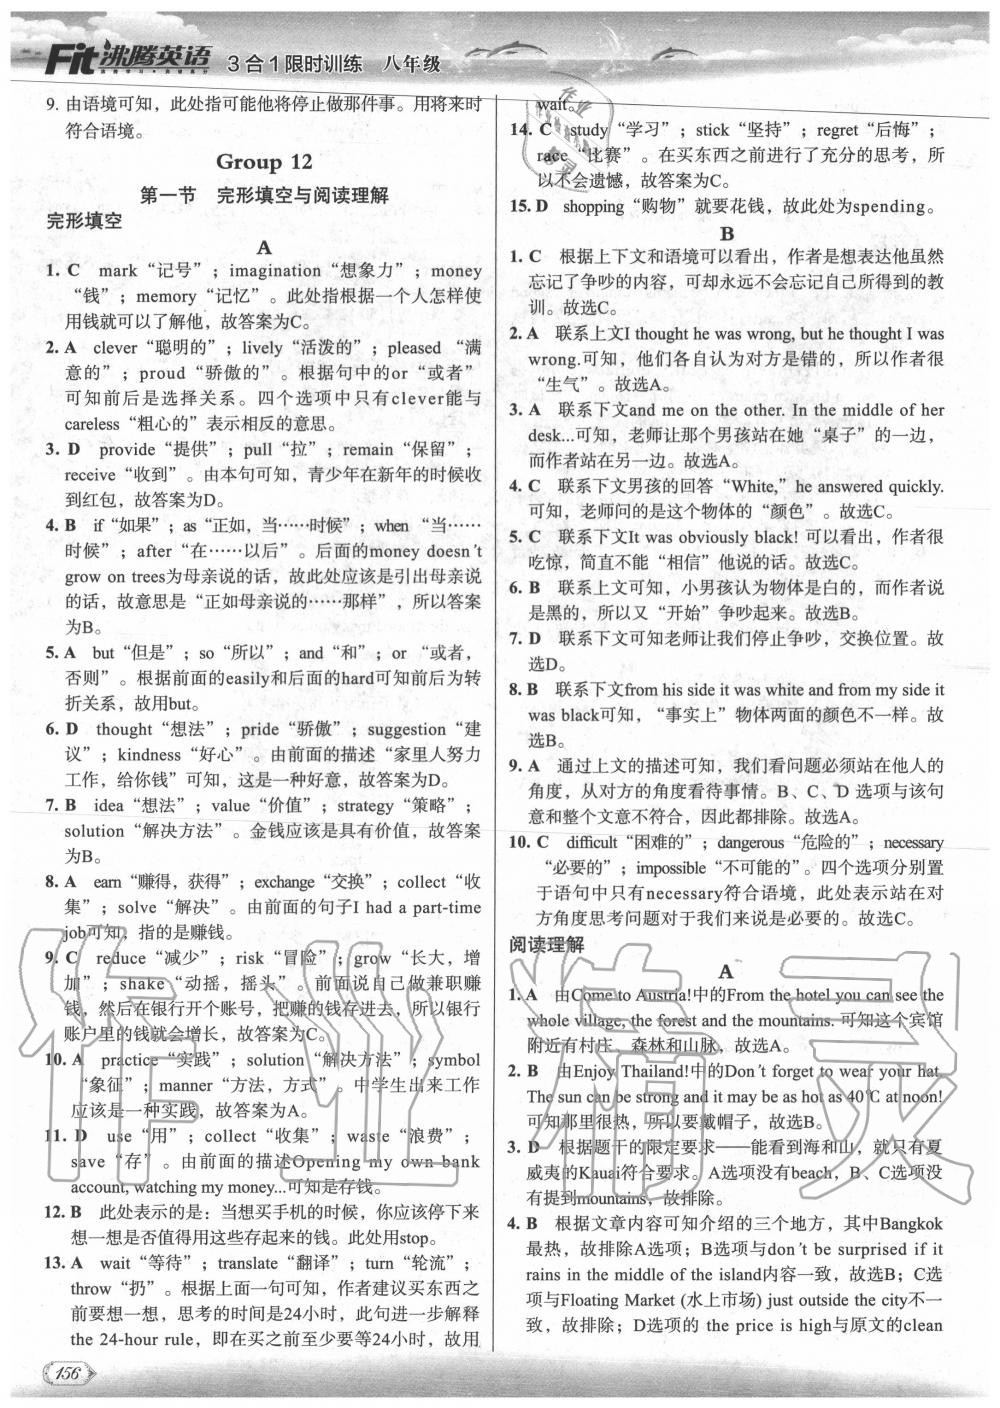 Fit 沸腾英语
3合1限时训练 八年级
9. 由语境可知，此处指可能他将停止做那件事。用将来时
符合语境。
Group 12
第一节 完形填空与阅读理解
完形填空
A
1. C mark“记号”；imagination“想象力”；money
“钱”；memory“记忆”。此处指根据一个人怎样使
用钱就可以了解他，故答案为C。
2. A clever“聪明的”；lively“活泼的”；pleased “满
意的”；proud“骄傲的”。根据句中的or“或者”
可知前后是选择关系。四个选项中只有clever能与
careless“粗心的”表示相反的意思。
3. D provide“提供”；pull“拉”；remain“保留”；
receive“收到”。由本句可知，青少年在新年的时候收
到红包，故答案为D。
4. B if“如果”；as“正如，当……时候”；when “当……
时候”；after“在……以后”。后面的money doesn't
grow on trees为母亲说的话，故此处应该是引出母亲说
的话，故意思是“正如母亲说的……那样”，所以答案
为B。
5. A but“但是”；so“所以”；and“和”；or “或者，
否则”。根据前面的easily和后面的hard可知前后为转
折关系，故用but。
6. D thought“想法”；pride“骄傲”；suggestion“建
议”；kindness“好心”。由前面的描述“家里人努力
工作，给你钱”可知，这是一种好意，故答案为D。
7. B idea“想法”；value“价值”；strategy“策略”；
solution“解决方法”。金钱应该是具有价值，故答案
为B。
8. A earn“赚得，获得”；exchange“交换”；collect“收
集”；solve“解决”。由前面的句子I had a part-time
job可知，指的是赚钱。
9. C reduce“减少”；risk“冒险”；grow“长大，增
加”；shake“动摇，摇头”。前面说自己做兼职赚
钱，然后在银行开个账号，把赚的钱存进去，所以银行
账户里的钱就会增长，故答案为C。
10. A practice“实践”；solution“解决方法”；symbol
“象征”；manner“方法，方式”。中学生出来工作
应该是一种实践，故答案为A。
11. D use“用”；collect“收集”；waste“浪费”；
save“存”。由前面的描述Opening my own bank
account, watching my money...可知是存钱。
12. B 此处表示的是：当想买手机的时候，你应该停下来
想一想是否值得用这些存起来的钱。此处用stop。
13. A wait“等待”；translate“翻译”；turn“轮流”；
throw“扔”。根据上面一句可知，作者建议买东西之
前要想一想，思考的时间是24小时，此句进一步解释
the 24-hour rule，即在买之前至少要等24小时，故用
wait。
14. C study“学习”；stick“坚持”；regret“后悔”；
race“比赛”。在买东西之前进行了充分的思考，所
以不会遗憾，故答案为C。
15. D shopping“购物”就要花钱，故此处为spending。
B
1. C 根据上下文和语境可以看出，作者是想表达他虽然
忘记了争吵的内容，可却永远不会忘记自己所得到的教
训。故选C。
2. A 联系上文I thought he was wrong, but he thought I was
wrong.可知，他们各自认为对方是错的，所以作者很
“生气”。故选A。
3. A 联系下文and me on the other. In the middle of her
desk...可知，老师让那个男孩站在她“桌子”的一边，
而作者站在另一边。故选A。
4. C 联系下文男孩的回答“White,”he answered quickly.
可知，老师问的是这个物体的“颜色”。故选C。
5. C 联系下文It was obviously black! 可以看出，作者很
吃惊，简直不能“相信”他说的话。故选C。
6. B 联系上文可知，小男孩认为物体是白的，而作者说
是黑的，所以又“开始”争吵起来。故选B。
7. D 联系下文可知老师让我们停止争吵，交换位置。故
选D。
8. B 联系下文from his side it was white and from my side it
was black可知，“事实上”物体两面的颜色不一样。故
选B。
9. A 通过上文的描述可知，我们看问题必须站在他人的
角度，从对方的角度看待事情。B、C、D 选项与该句
意和整个文意不符合，因此都排除。故选A。
10. C difficult“困难的”；dangerous“危险的”；necessary
“必要的”；impossible“不可能的”。四个选项分别置
于语句中只有necessary符合语境，此处表示站在对
方角度思考问题对于我们来说是必要的。故选C。
阅读理解
A
1. A 由Come to Austria!中的From the hotel you can see the
whole village, the forest and the mountains. 可知这个宾馆
附近有村庄、森林和山脉，故选A。
2. B 由Enjoy Thailand!中的Don't forget to wear your hat.
The sun can be strong and it may be as hot as 40℃ at noon!
可知那里很热，所以要戴帽子，故选B。
3. D 根据题干的限定要求——能看到海和山，就只有夏
威夷的Kauai符合要求。A选项没有beach，B、C选项没
有提到mountains，故排除。
4. B 根据文章内容可知介绍的三个地方，其中Bangkok
最热，故排除A选项；B选项与don't be surprised if it
rains in the middle of the island内容一致，故选B；C选
项与Floating Market (水上市场) just outside the city不一
致，故排除；D选项的 the price is high与原文的clean
156
作业精灵